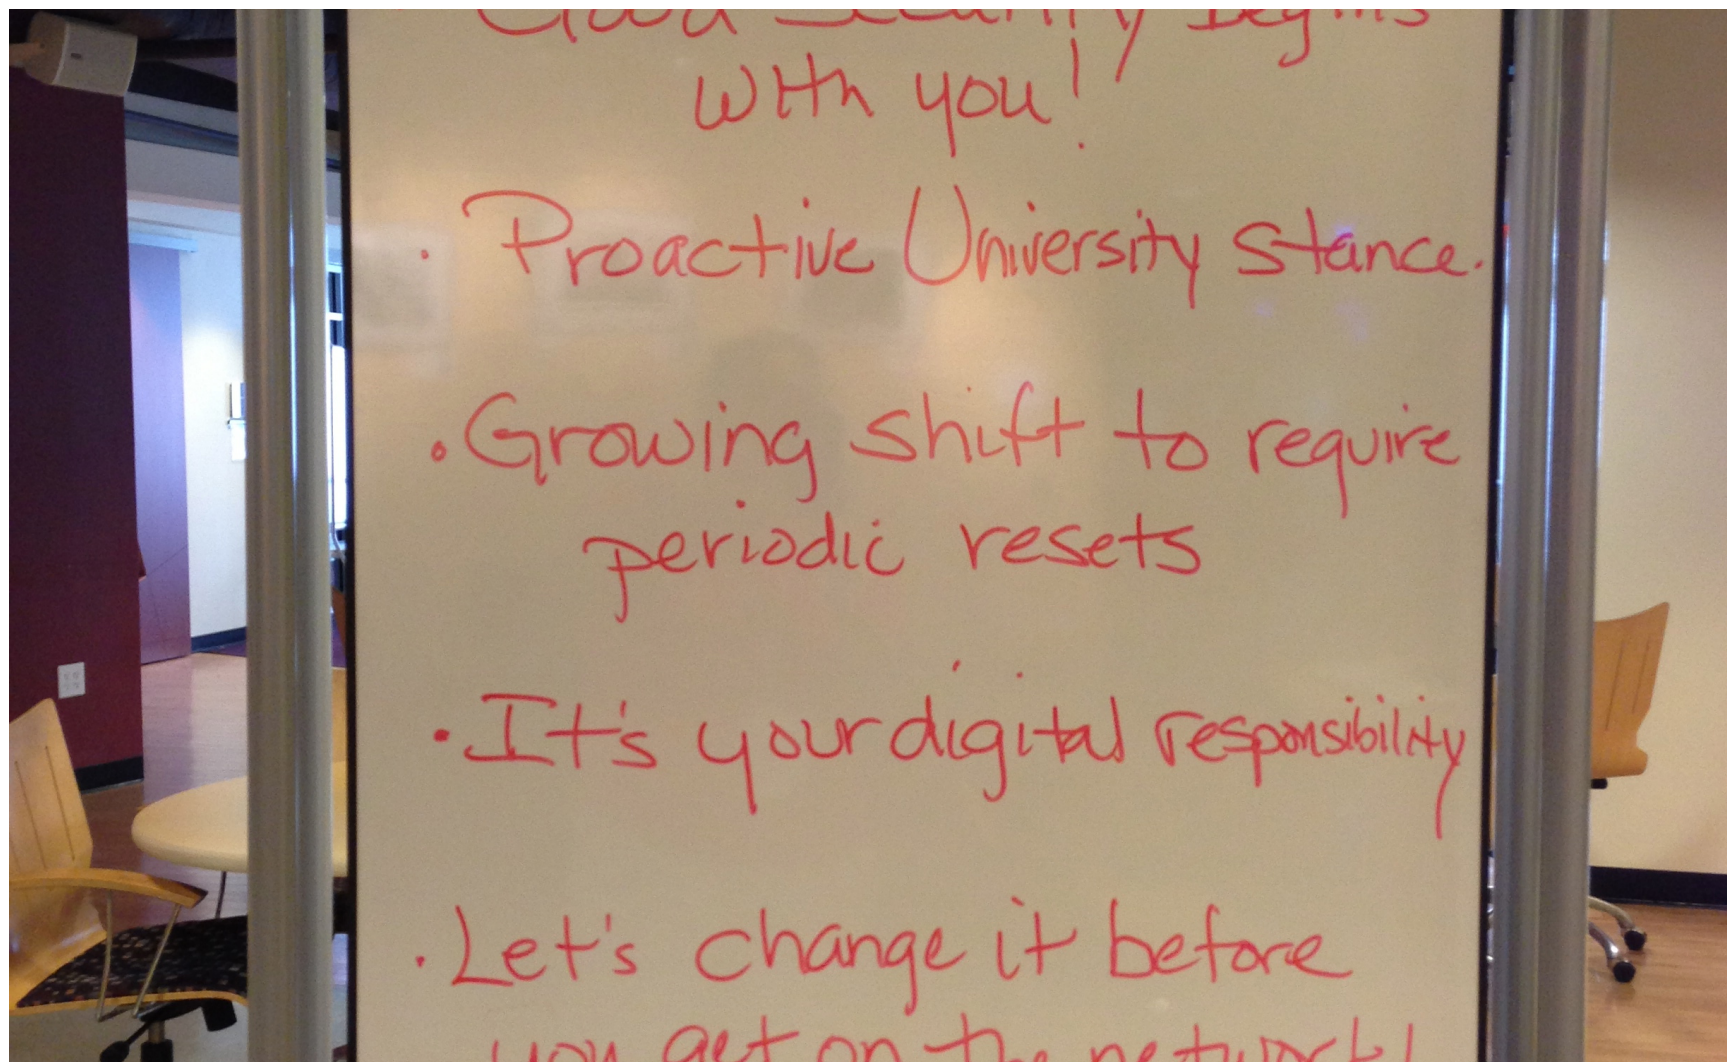 Cloud Security Begins
with you!
· Proactive University Stance.
· Growing shift to require
periodic resets
· It's your digital responsibility
· Let's change it before
you get on the network!